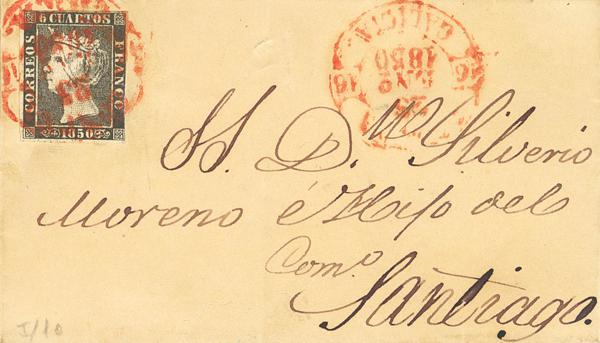 6 CUARTOS
CORREOS
FRANCO
1850
1850
16
16
SS. D.ⁿ Silverio
Moreno é Hijo del
Com.º
Santiago.
I/10